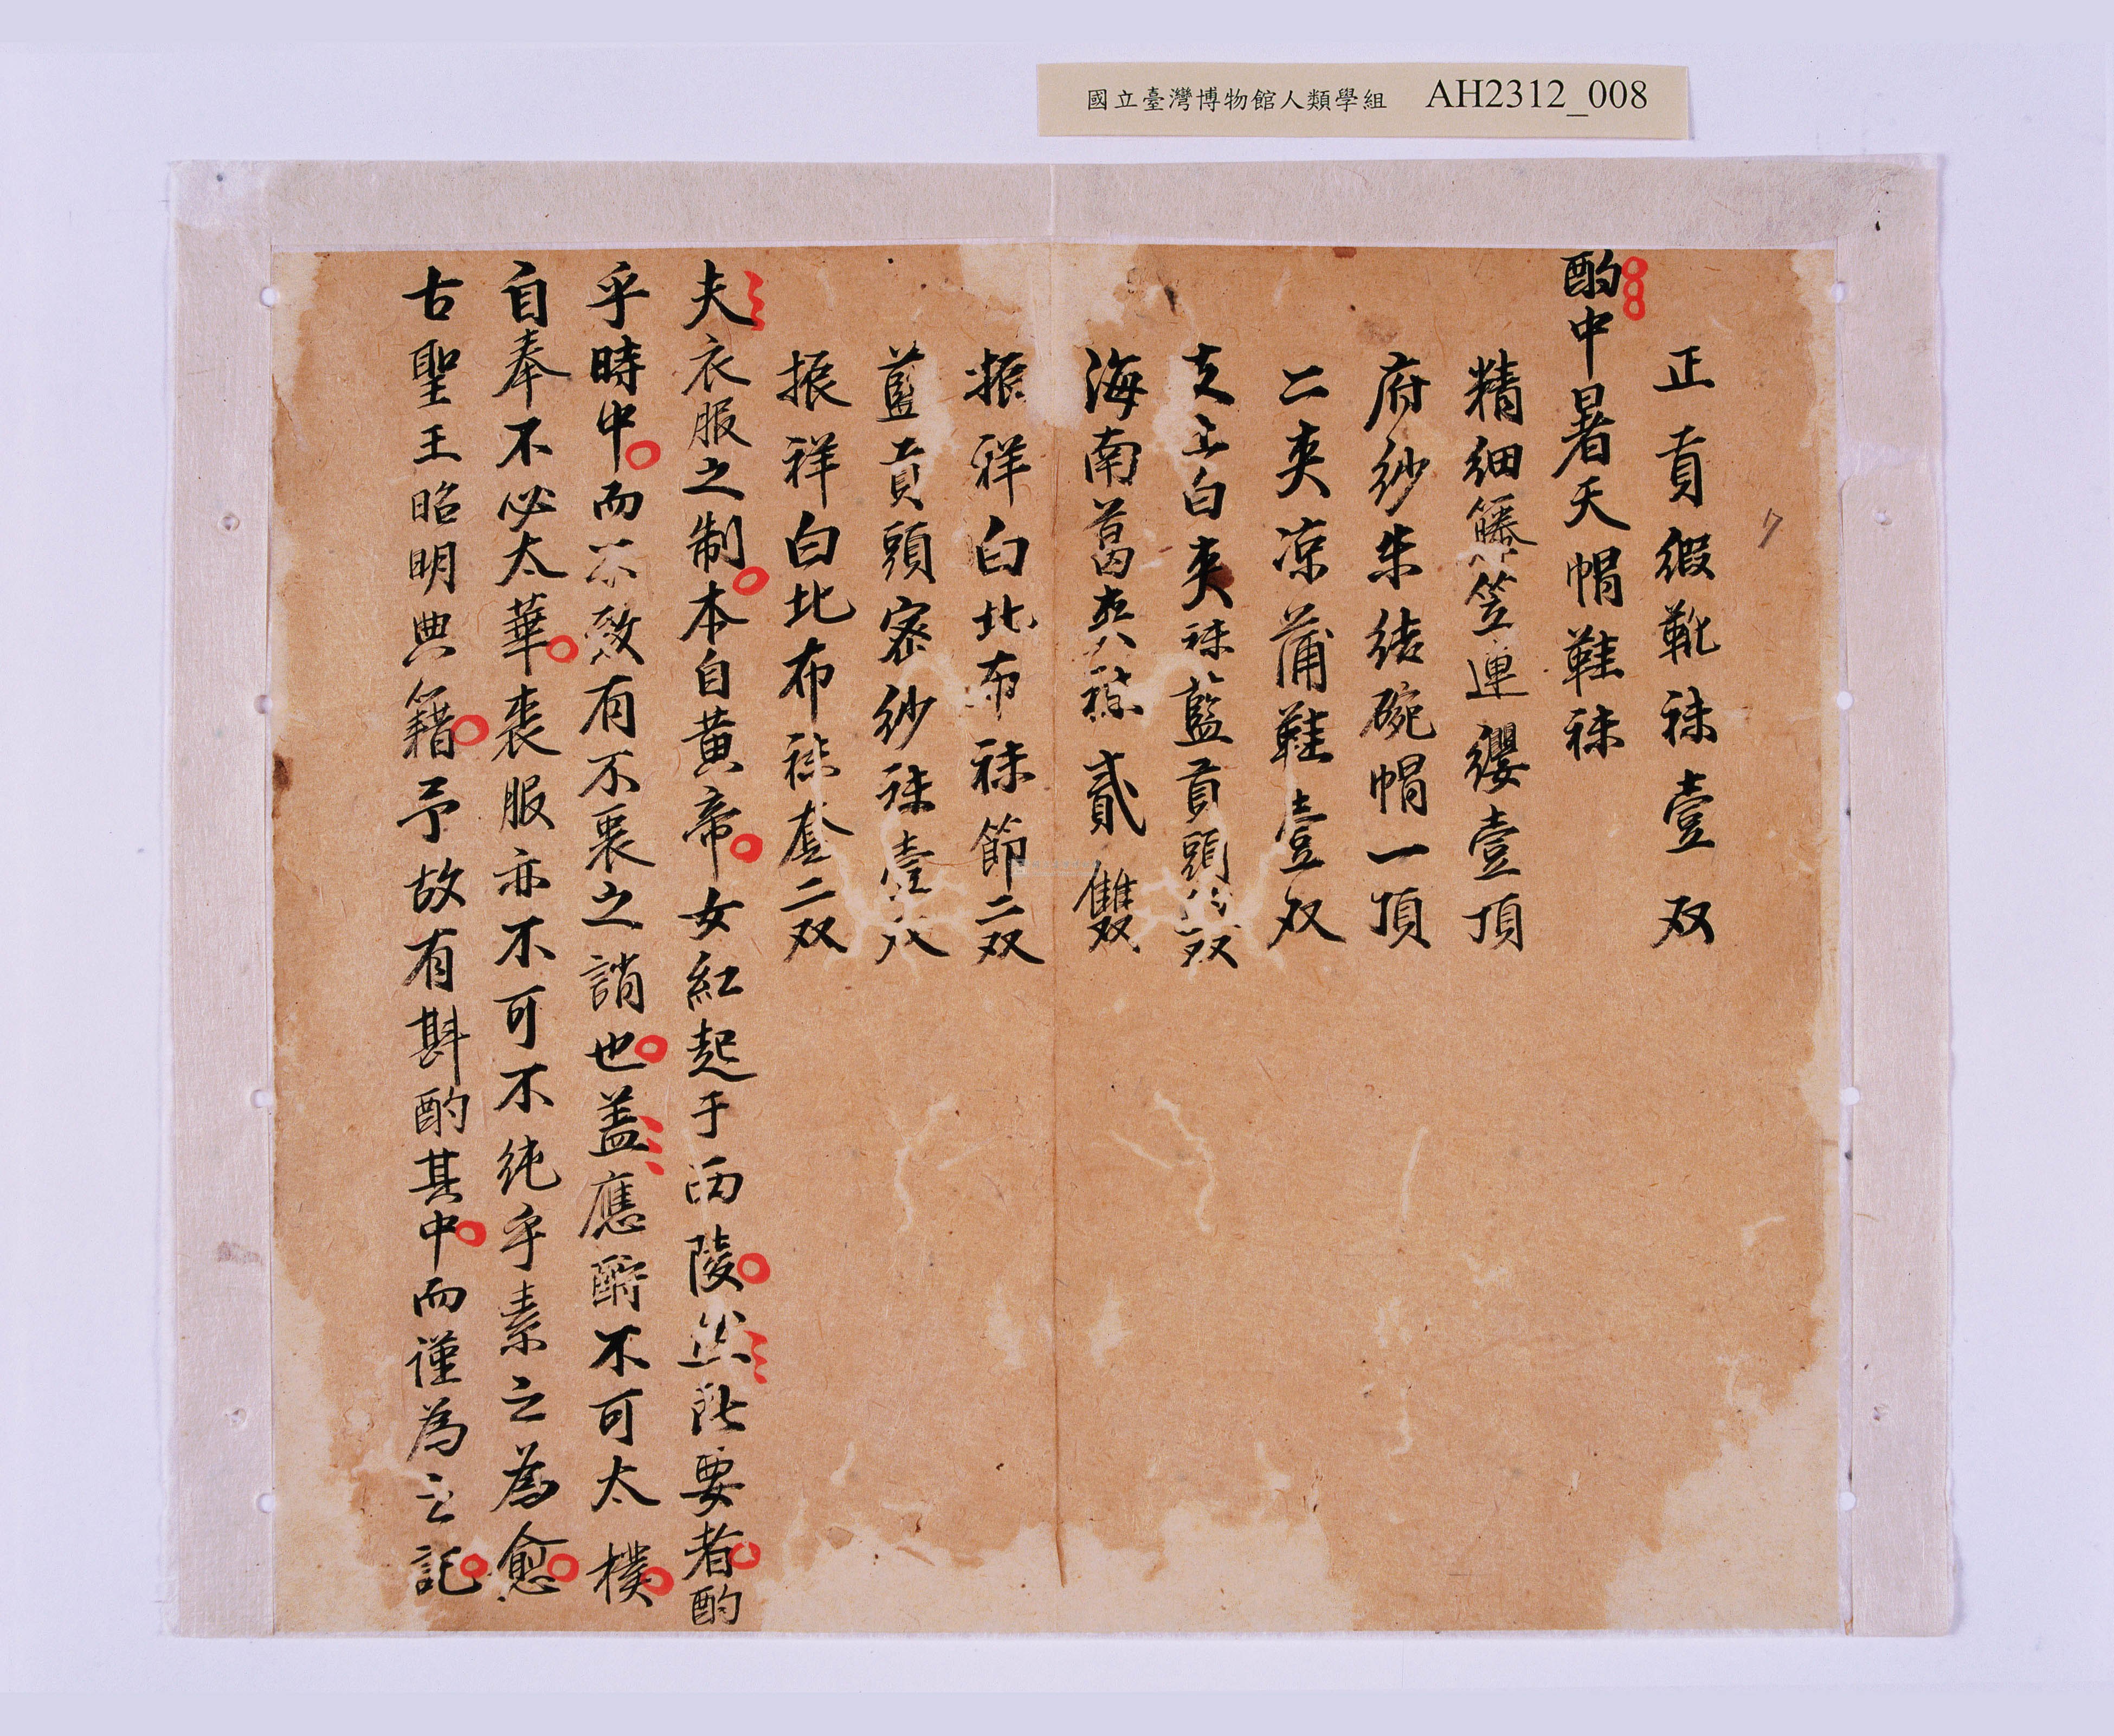 國立臺灣博物館人類學組 AH2312_008
7
正貢緞靴袜壹双
酌中暑天帽鞋袜
精細籐笠連纓壹頂
府紗朱結碗帽一頂
二夾凉蒲鞋壹双
白夾袜藍貢頭双
海南葛夾袜貳雙
振祥白北布袜節二双
藍貢頭密紗袜壹双
振祥白北布袜套二双
夫衣服之制本自黃帝女紅起于西陵然此要者酌
乎時中而不致有不衷之誚也盖應酧不可太樸
自奉不必太華裘服亦不可不純乎素之為愈
古聖王昭明典籍予故有斟酌其中而謹為之記